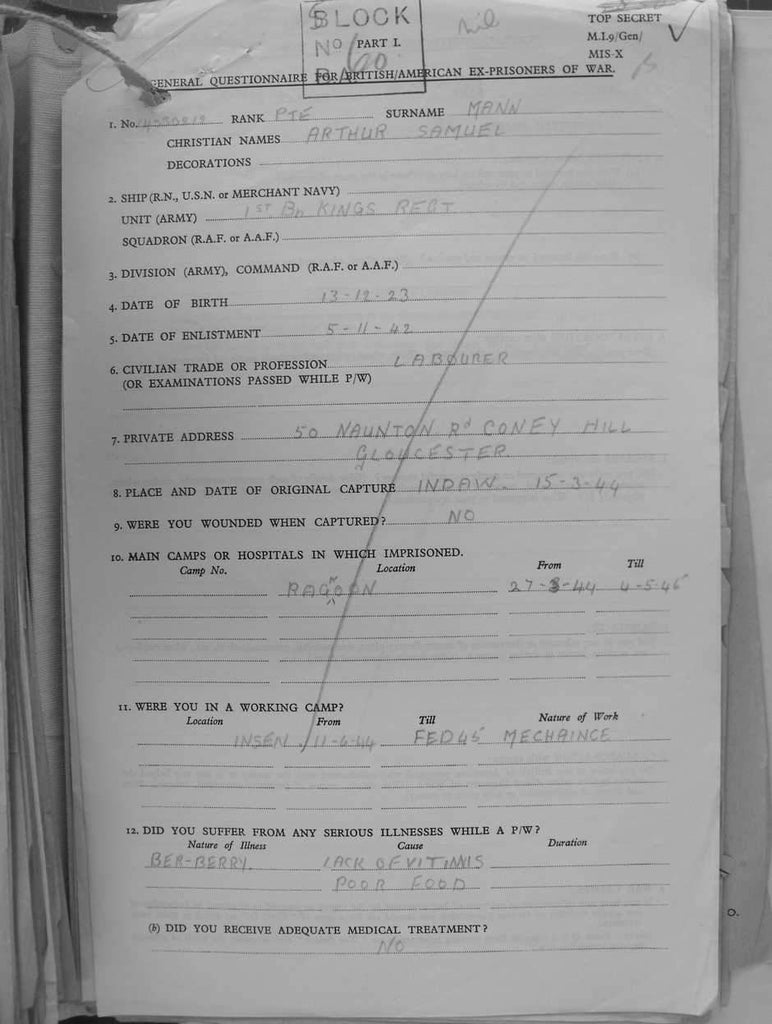 BLOCK
No
nil
TOP SECRET
M.I.9/Gen/
MIS-X
PART I.
GENERAL QUESTIONNAIRE FOR BRITISH/AMERICAN EX-PRISONERS OF WAR.
1. No. RANK PTE SURNAME MANN
CHRISTIAN NAMES ARTHUR SAMUEL
DECORATIONS
2. SHIP (R.N., U.S.N. or MERCHANT NAVY)
UNIT (ARMY) 1ST Bn KINGS REGT
SQUADRON (R.A.F. or A.A.F.)
3. DIVISION (ARMY), COMMAND (R.A.F. or A.A.F.)
4. DATE OF BIRTH 13-12-23
5. DATE OF ENLISTMENT 5-11-42
6. CIVILIAN TRADE OR PROFESSION LABOURER
(OR EXAMINATIONS PASSED WHILE P/W)
7. PRIVATE ADDRESS 50 NAUNTON Rd CONEY HILL
GLOUCESTER
8. PLACE AND DATE OF ORIGINAL CAPTURE INDAW. 15-3-44
9. WERE YOU WOUNDED WHEN CAPTURED? NO
10. MAIN CAMPS OR HOSPITALS IN WHICH IMPRISONED.
Camp No. Location From Till
RAGOON 27-3-44 4-5-45
11. WERE YOU IN A WORKING CAMP?
Location From Till Nature of Work
INSEN. 11-6-44 FED 45 MECHAINCE
12. DID YOU SUFFER FROM ANY SERIOUS ILLNESSES WHILE A P/W?
Nature of Illness Cause Duration
BER-BERRY. LACK OF VITIMIS
POOR FOOD
(b) DID YOU RECEIVE ADEQUATE MEDICAL TREATMENT?
NO